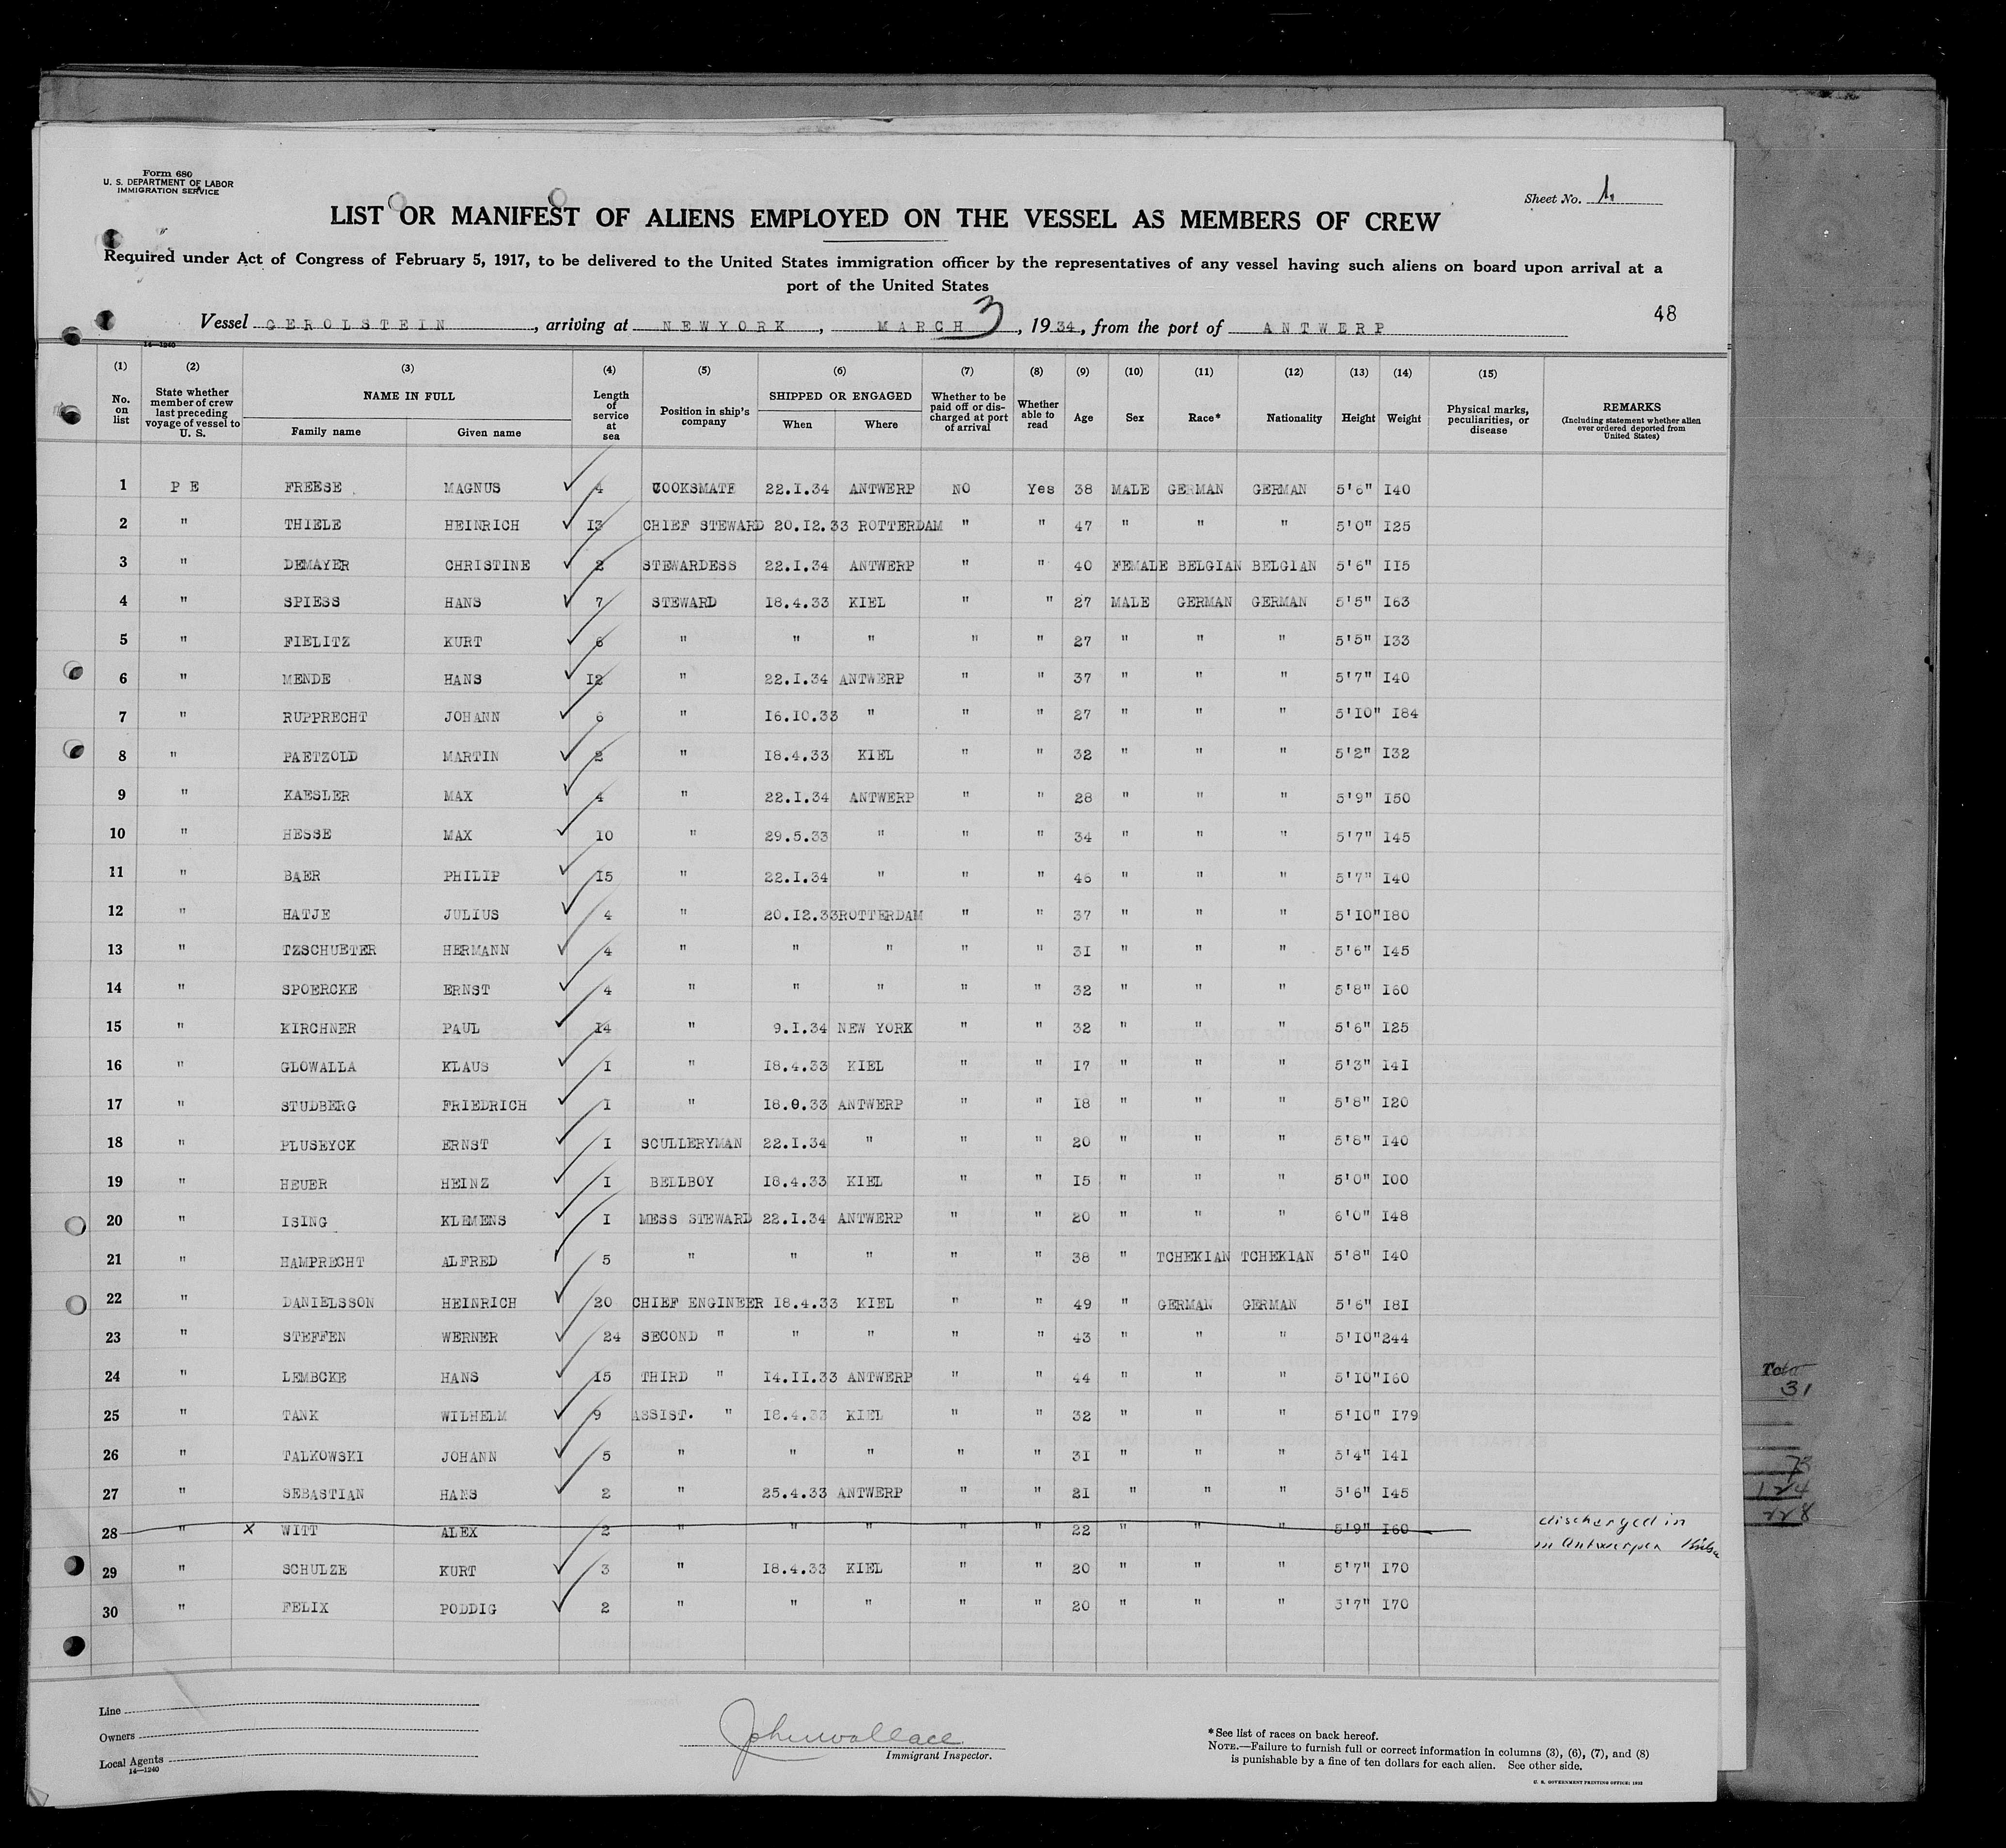 Form 680
U. S. DEPARTMENT OF LABOR
IMMIGRATION SERVICE
Sheet No. 1.
LIST OR MANIFEST OF ALIENS EMPLOYED ON THE VESSEL AS MEMBERS OF CREW
Required under Act of Congress of February 5, 1917, to be delivered to the United States immigration officer by the representatives of any vessel having such aliens on board upon arrival at a
port of the United States
48
Vessel GEROLSTEIN, arriving at NEWYORK, MARCH 3, 1934, from the port of ANTWERP
14—1240
(1) (2) (3) (4) (5) (6) (7) (8) (9) (10) (11) (12) (13) (14) (15)
No. on list | State whether member of crew last preceding voyage of vessel to U. S. | NAME IN FULL Family name Given name | Length of service at sea | Position in ship's company | SHIPPED OR ENGAGED When Where | Whether to be paid off or discharged at port of arrival | Whether able to read | Age | Sex | Race* | Nationality | Height | Weight | Physical marks, peculiarities, or disease | REMARKS (Including statement whether alien ever ordered deported from United States)
1 P E FREESE MAGNUS ✓ 4 COOKSMATE 22.I.34 ANTWERP NO Yes 38 MALE GERMAN GERMAN 5'6" I40
2 " THIELE HEINRICH ✓ I3 CHIEF STEWARD 20.I2.33 ROTTERDAM " " 47 " " " 5'0" I25
3 " DEMAYER CHRISTINE ✓ 2 STEWARDESS 22.I.34 ANTWERP " " 40 FEMALE BELGIAN BELGIAN 5'6" II5
4 " SPIESS HANS ✓ 7 STEWARD I8.4.33 KIEL " " 27 MALE GERMAN GERMAN 5'5" I63
5 " FIELITZ KURT ✓ 6 " " " " " 27 " " " 5'5" I33
6 " MENDE HANS ✓ I2 " 22.I.34 ANTWERP " " 37 " " " 5'7" I40
7 " RUPPRECHT JOHANN ✓ 6 " I6.I0.33 " " " 27 " " " 5'I0" I84
8 " PAETZOLD MARTIN ✓ 2 " I8.4.33 KIEL " " 32 " " " 5'2" I32
9 " KAESLER MAX ✓ 4 " 22.I.34 ANTWERP " " 28 " " " 5'9" I50
10 " HESSE MAX ✓ 10 " 29.5.33 " " " 34 " " " 5'7" I45
11 " BAER PHILIP ✓ I5 " 22.I.34 " " " 46 " " " 5'7" I40
12 " HATJE JULIUS ✓ 4 " 20.I2.33ROTTERDAM " " 37 " " " 5'I0"I80
13 " TZSCHUETER HERMANN ✓ 4 " " " " " 3I " " " 5'6" I45
14 " SPOERCKE ERNST ✓ 4 " " " " " 32 " " " 5'8" I60
15 " KIRCHNER PAUL ✓ I4 " 9.I.34 NEW YORK " " 32 " " " 5'6" I25
16 " GLOWALLA KLAUS ✓ I " I8.4.33 KIEL " " I7 " " " 5'3" I4I
17 " STUDBERG FRIEDRICH ✓ I " ANTWERP " " I8 " " " 5'8" I20
18 " PLUSEYCK ERNST ✓ I SCULLERYMAN 22.I.34 " " " 20 " " " 5'8" I40
19 " HEUER HEINZ ✓ I BELLBOY I8.4.33 KIEL " " I5 " " " 5'0" I00
20 " ISING KLEMENS ✓ I MESS STEWARD 22.I.34 ANTWERP " " 20 " " " 6'0" I48
21 " HAMPRECHT ALFRED ✓ 5 " " " " " 38 " TCHEKIAN TCHEKIAN 5'8" I40
22 " DANIELSSON HEINRICH ✓ 20 CHIEF ENGINEER I8.4.33 KIEL " " 49 " GERMAN GERMAN 5'6" I8I
23 " STEFFEN WERNER ✓ 24 SECOND " " " " " 43 " " " 5'I0"244
24 " LEMBCKE HANS ✓ I5 THIRD " I4.II.33 ANTWERP " " 44 " " " 5'I0"I60
25 " TANK WILHELM ✓ 9 ASSIST. " I8.4.33 KIEL " " 32 " " " 5'I0" I79
26 " TALKOWSKI JOHANN ✓ 5 " " " " " 3I " " " 5'4" I4I
27 " SEBASTIAN HANS ✓ 2 " 25.4.33 ANTWERP " " 2I " " " 5'6" I45
28 " X WITT ALEX 2 " " " " " 22 " " " 5'9" I60 discherged in
in Antwerpen
29 " SCHULZE KURT ✓ 3 " I8.4.33 KIEL " " 20 " " " 5'7" I70
30 " FELIX PODDIG ✓ 2 " " " " " 20 " " " 5'7" I70
Line
Owners
Local Agents
14—1240
John Wallace
Immigrant Inspector.
*See list of races on back hereof.
NOTE.—Failure to furnish full or correct information in columns (3), (6), (7), and (8)
is punishable by a fine of ten dollars for each alien. See other side.
U. S. GOVERNMENT PRINTING OFFICE: 1932
31
73
124
228